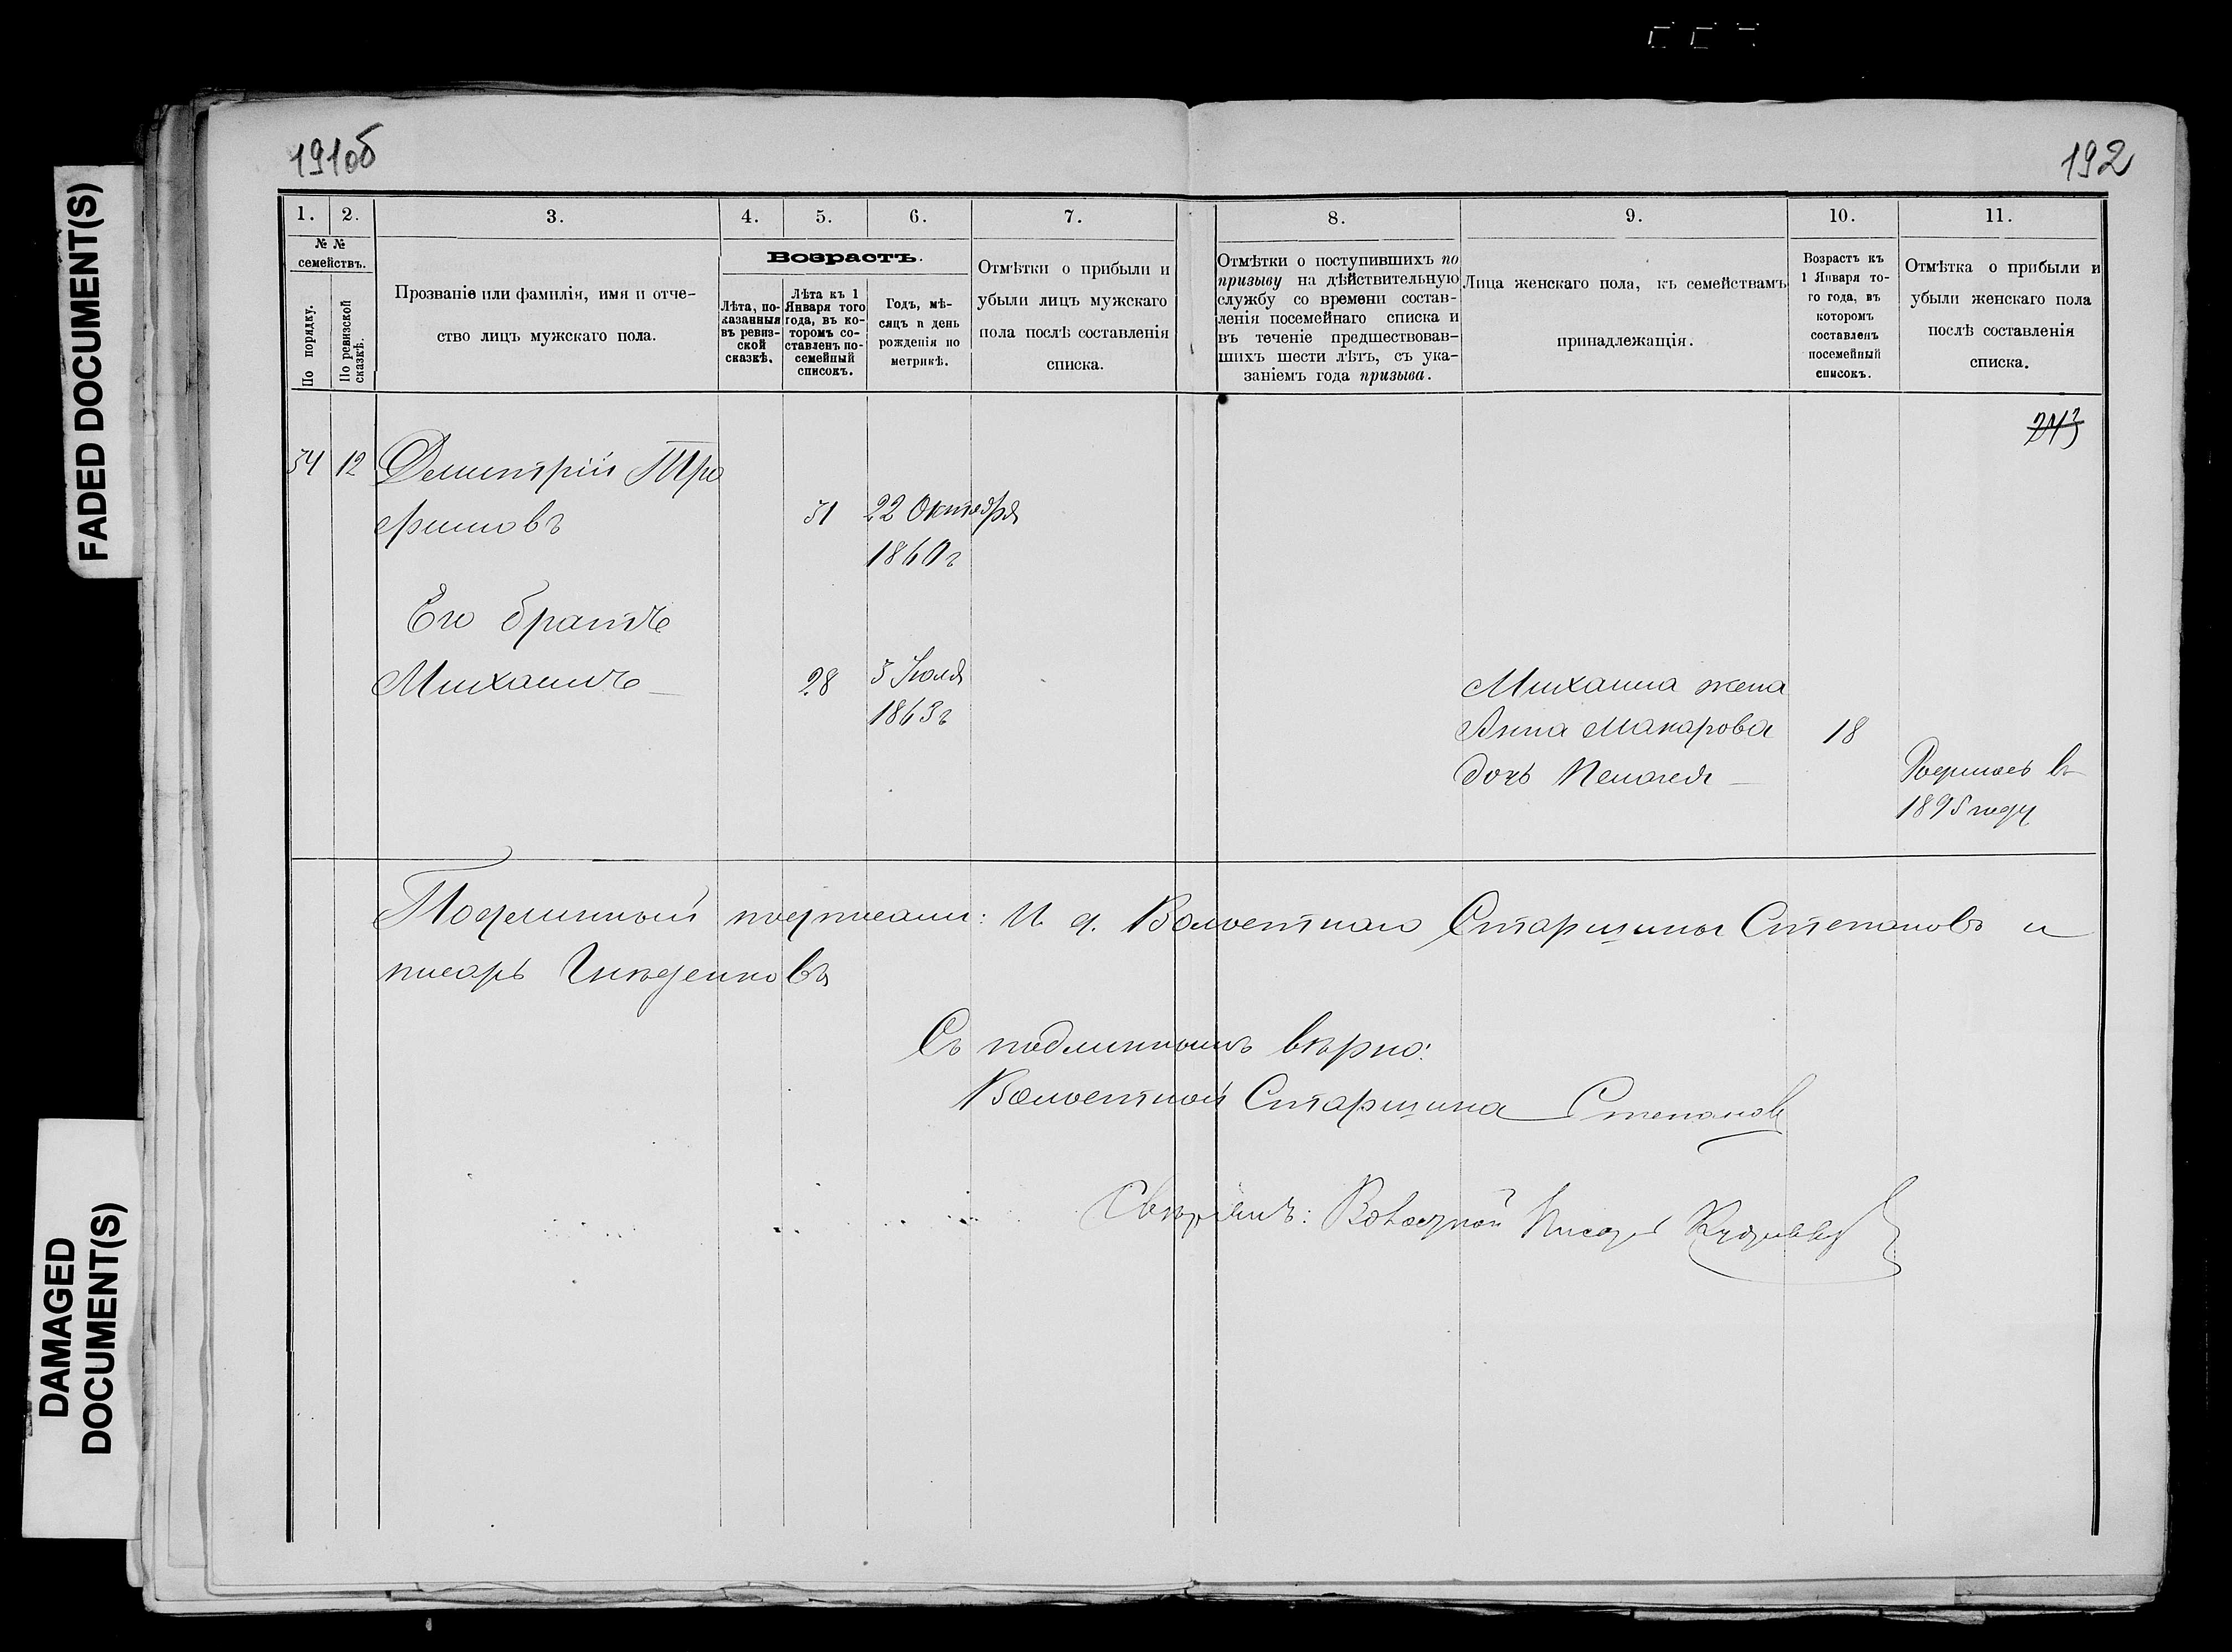 191об
192
FADED DOCUMENT(S)
DAMAGED
DOCUMENT(S)
1.
2.
3.
4.
5.
6.
7.
8.
9.
10.
11.
№ №
семействъ.
По порядку.
По ревизской
сказкѣ.
Прозваніе или фамилія, имя и отче-
ство лицъ мужскаго пола.
Возрастъ.
Лѣта, по-
казанныя
въ ревиз-
ской
сказкѣ.
Лѣта къ 1
Января того
года, въ ко-
торомъ со-
ставленъ по-
семейный
списокъ.
Годъ, мѣ-
сяцъ и день
рожденія по
метрикѣ.
Отмѣтки о прибыли и
убыли лицъ мужскаго
пола послѣ составленія
списка.
Отмѣтки о поступившихъ по
призыву на дѣйствительную
службу со времени состав-
ленія посемейнаго списка и
въ теченіе предшествовав-
шихъ шести лѣтъ, съ ука-
заніемъ года призыва.
Лица женскаго пола, къ семействамъ
принадлежащія.
Возрастъ къ
1 Января то-
го года, въ
которомъ
составленъ
посемейный
списокъ.
Отмѣтка о прибыли и
убыли женскаго пола
послѣ составленія
списка.
34 12 Демитрій Тро
фимовъ 31 22 Октября
1860г
Его братъ
Михаилъ 28 3 Іюля Михаила жена
1863г Анна Макарова 18
дочь Пелагея Родилась въ
1895 году
Подлинный подписали: И. д. Волостнаго Старшины Степановъ и
писарь
Съ подлиннымъ вѣрно:
Волостной Старшина Степановъ
Свѣрялъ: Волостной Писарь